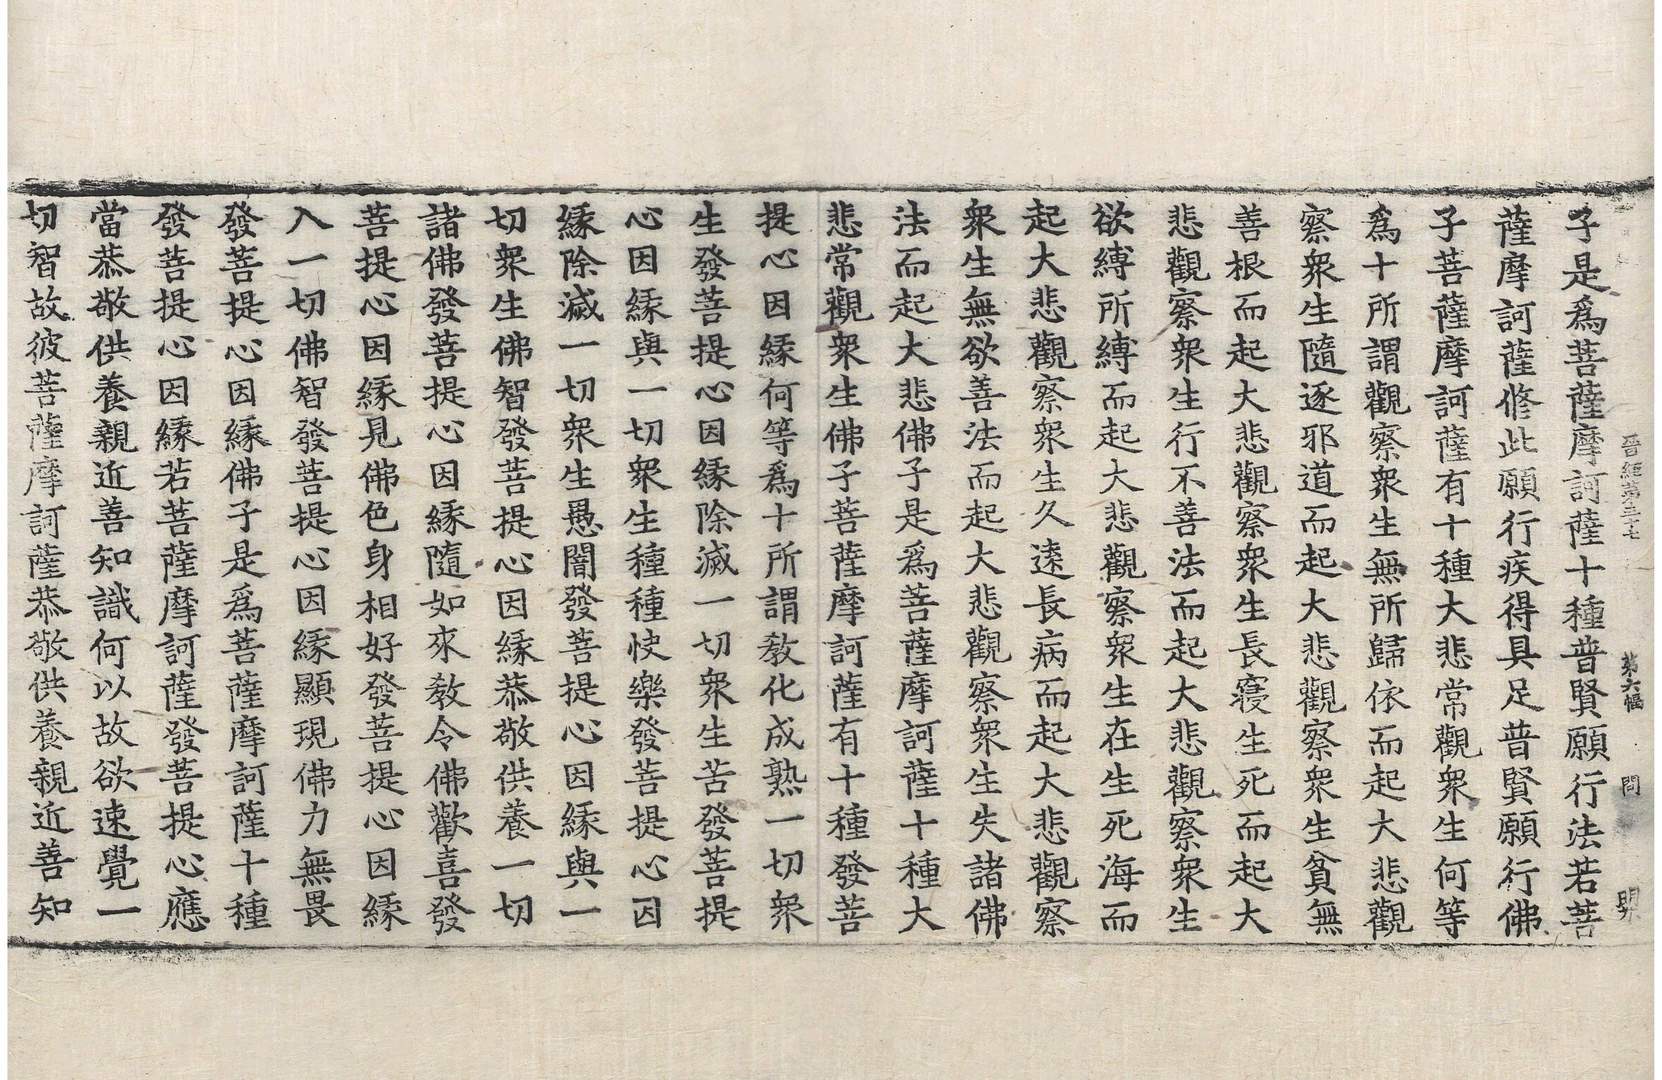 晉經第三十七 第六幅 問
子是爲菩薩摩訶薩十種普賢願行法若菩
薩摩訶薩修此願行疾得具足普賢願行佛
子菩薩摩訶薩有十種大悲常觀衆生何等
爲十所謂觀察衆生無所歸依而起大悲觀
察衆生隨逐邪道而起大悲觀察衆生貧無
善根而起大悲觀察衆生長寢生死而起大
悲觀察衆生行不善法而起大悲觀察衆生
欲縛所縛而起大悲觀察衆生在生死海而
起大悲觀察衆生久遠長病而起大悲觀察
衆生無欲善法而起大悲觀察衆生失諸佛
法而起大悲佛子是爲菩薩摩訶薩十種大
悲常觀衆生佛子菩薩摩訶薩有十種發菩
提心因緣何等爲十所謂教化成熟一切衆
生發菩提心因緣除滅一切衆生苦發菩提
心因緣與一切衆生種種快樂發菩提心因
緣除滅一切衆生愚闇發菩提心因緣與一
切衆生佛智發菩提心因緣恭敬供養一切
諸佛發菩提心因緣隨如來教令佛歡喜發
菩提心因緣見佛色身相好發菩提心因緣
入一切佛智發菩提心因緣顯現佛力無畏
發菩提心因緣佛子是爲菩薩摩訶薩十種
發菩提心因緣若菩薩摩訶薩發菩提心應
當恭敬供養親近善知識何以故欲速覺一
切智故彼菩薩摩訶薩恭敬供養親近善知